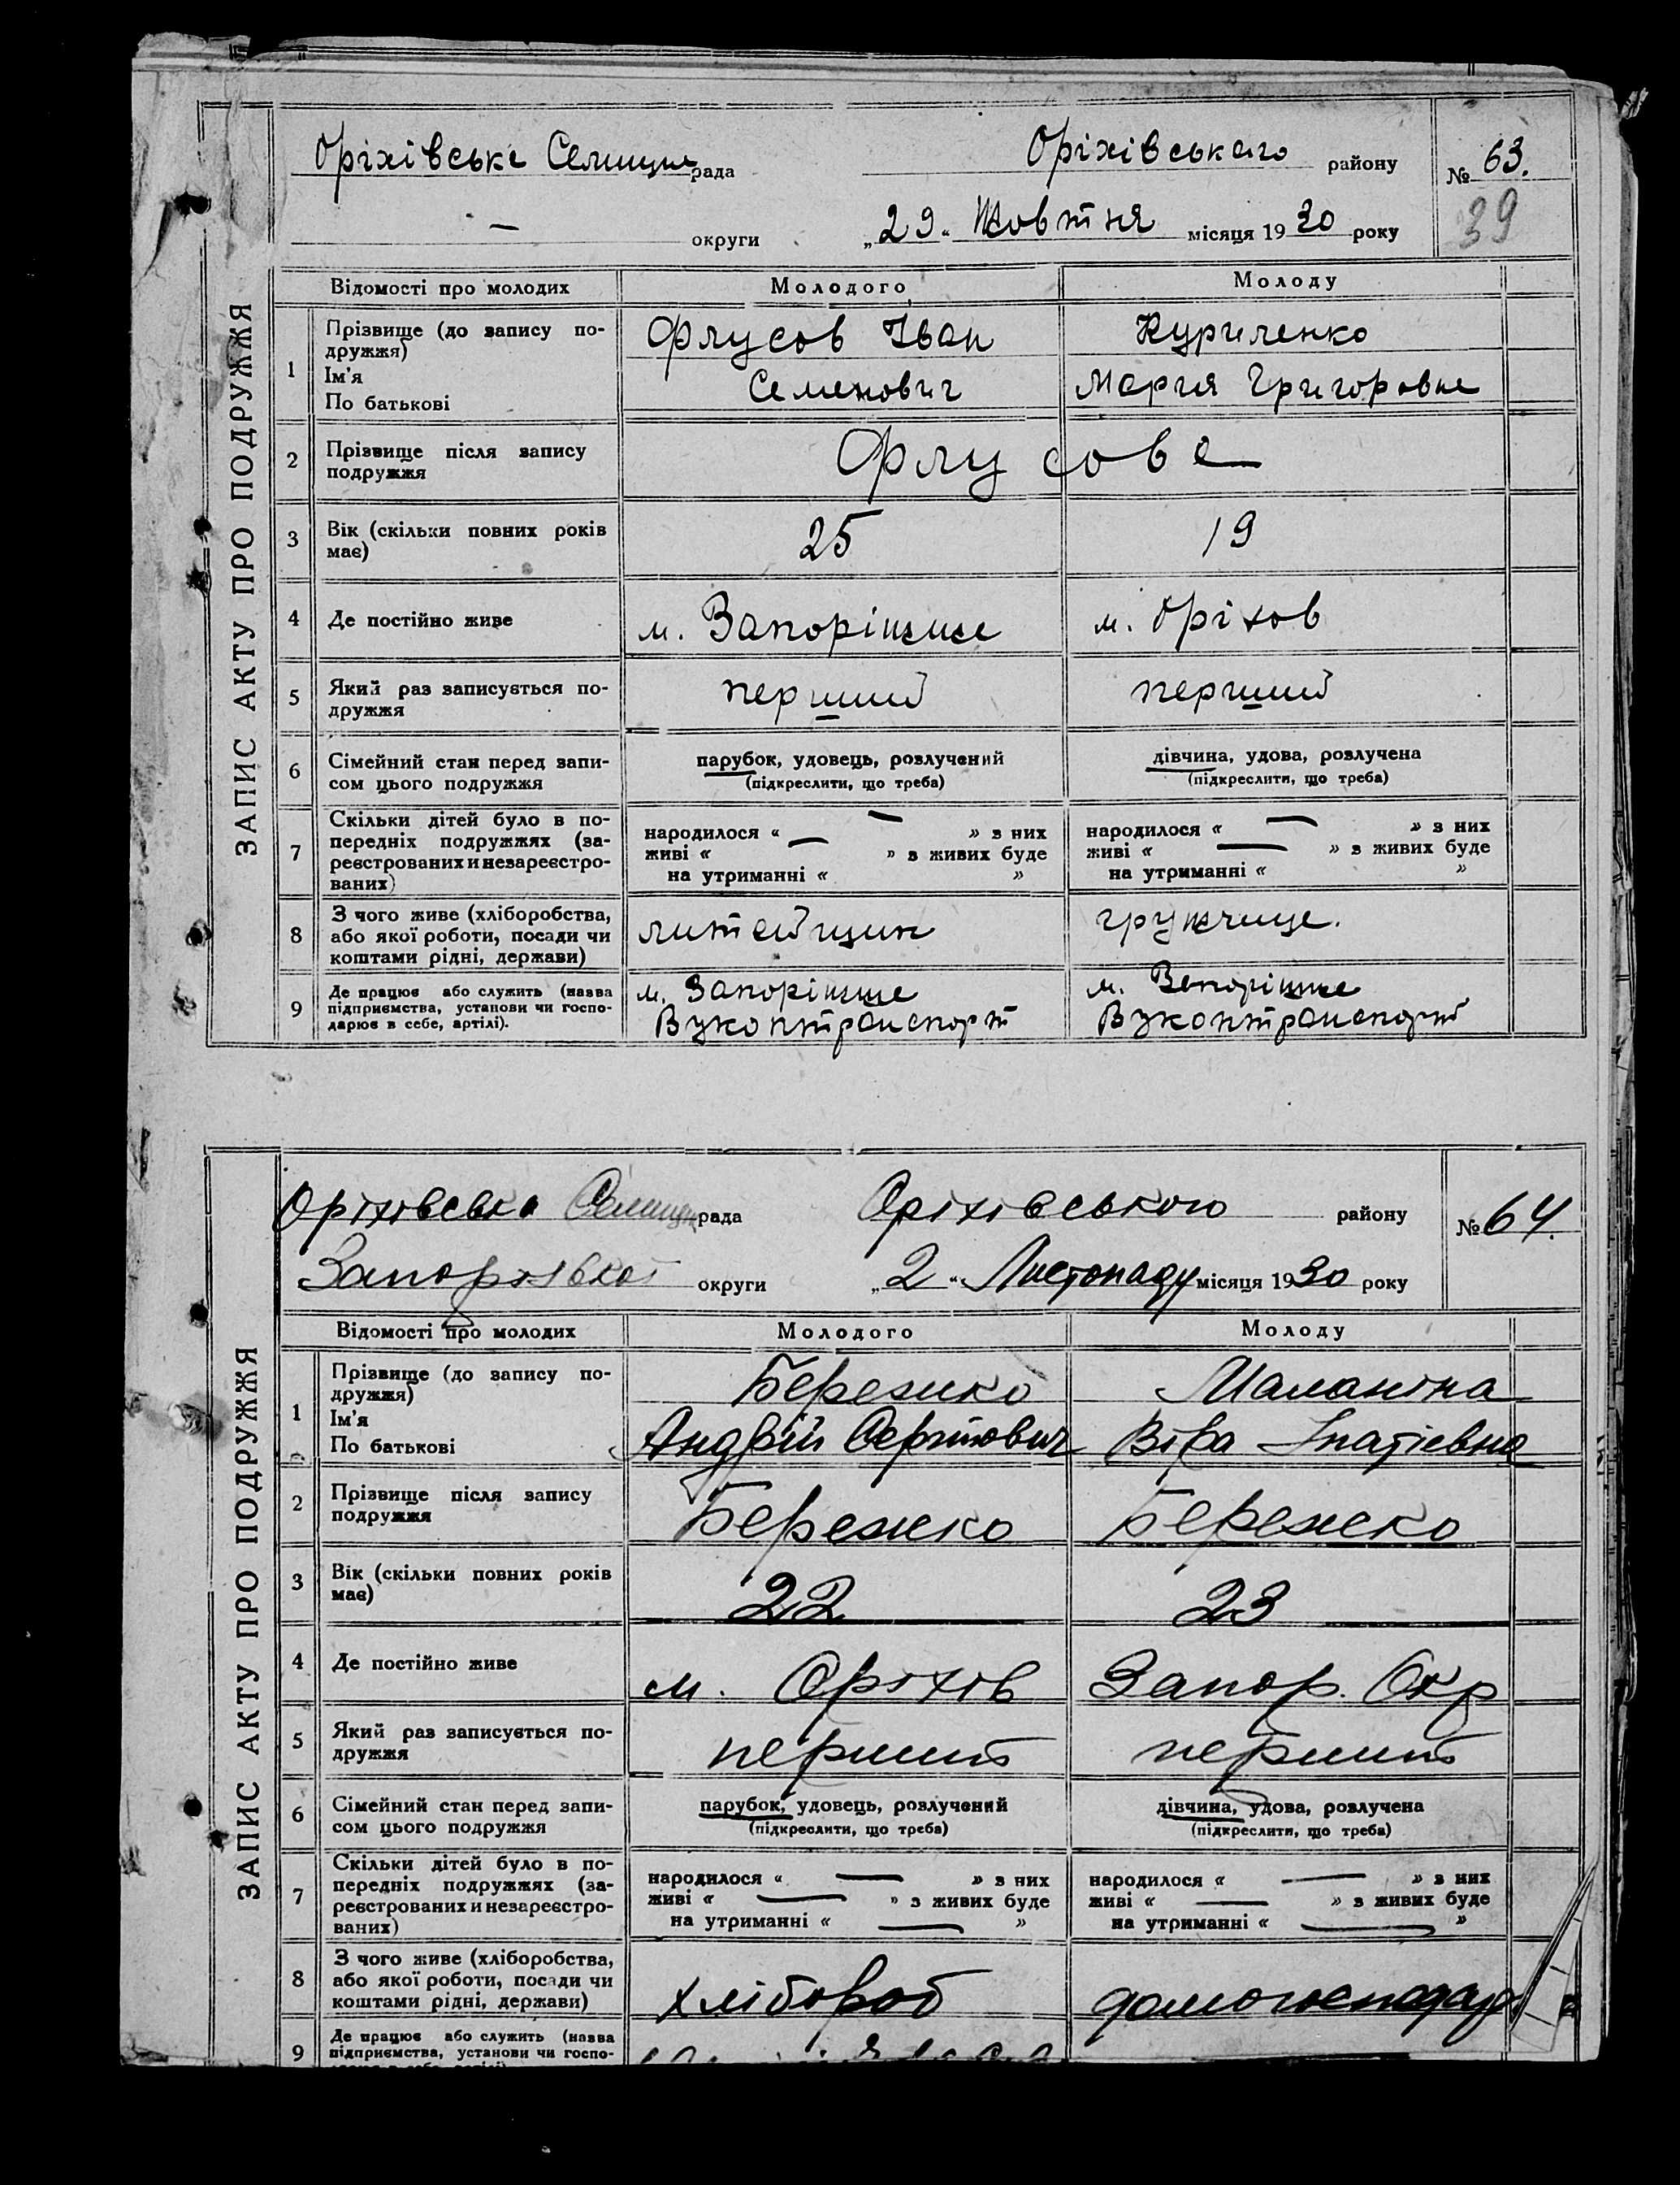 ЗАПИС АКТУ ПРО ПОДРУЖЖЯ
Оріхівська Селищн рада Оріхівського району № 63.
— округи „29“ Жовтня місяця 1930 року 39
Відомості про молодих Молодого Молоду
1 Прізвище (до запису по-
дружжя)
Ім'я
По батькові
Флусов Іван
Семенович
Куриленко
Мария Григоровна
2 Прізвище після запису
подружжя
Флусова
3 Вік (скільки повних років
має)
25 19
4 Де постійно живе м. Запоріжже м. Оріхов
5 Який раз записується по-
дружжя
перший перший
6 Сімейний стан перед запи-
сом цього подружжя
парубок, удовець, розлучений
(підкреслити, що треба)
дівчина, удова, розлучена
(підкреслити, що треба)
7 Скільки дітей було в по-
передніх подружжях (за-
реєстрованих и незареєстро-
ваних)
народилося « — » з них
живі « — » з живих буде
на утриманні « »
народилося « — » з них
живі « — » з живих буде
на утриманні « »
8 З чого живе (хліборобства,
або якої роботи, посади чи
коштами рідні, держави)
литейщик
грузчица.
9 Де працює або служить (назва
підприємства, установи чи госпо-
дарює в себе, артілі).
м. Запоріжже
Вукоптранспорт
м. Запоріжже
Вукоптранспорт
ЗАПИС АКТУ ПРО ПОДРУЖЖЯ
Оріхівська Селищн рада Оріхівського району № 64.
Запорізької округи „2“ Листопаду місяця 1930 року
Відомості про молодих Молодого Молоду
1 Прізвище (до запису по-
дружжя)
Ім'я
По батькові
Бережко
Андрій
Маланіна
Віра Іпатієвна
2 Прізвище після запису
подружжя
Бережко Бережко
3 Вік (скільки повних років
має)
22 23
4 Де постійно живе м. Оріхів Запор. Окр
5 Який раз записується по-
дружжя
перший перший
6 Сімейний стан перед запи-
сом цього подружжя
парубок, удовець, розлучений
(підкреслити, що треба)
дівчина, удова, розлучена
(підкреслити, що треба)
7 Скільки дітей було в по-
передніх подружжях (за-
реєстрованих и незареєстро-
ваних)
народилося « — » з них
живі « — » з живих буде
на утриманні « — »
народилося « — » з них
живі « — » з живих буде
на утриманні « — »
8 З чого живе (хліборобства,
або якої роботи, посади чи
коштами рідні, держави)
хлібороб
9 Де працює або служить (назва
підприємства, установи чи госпо-